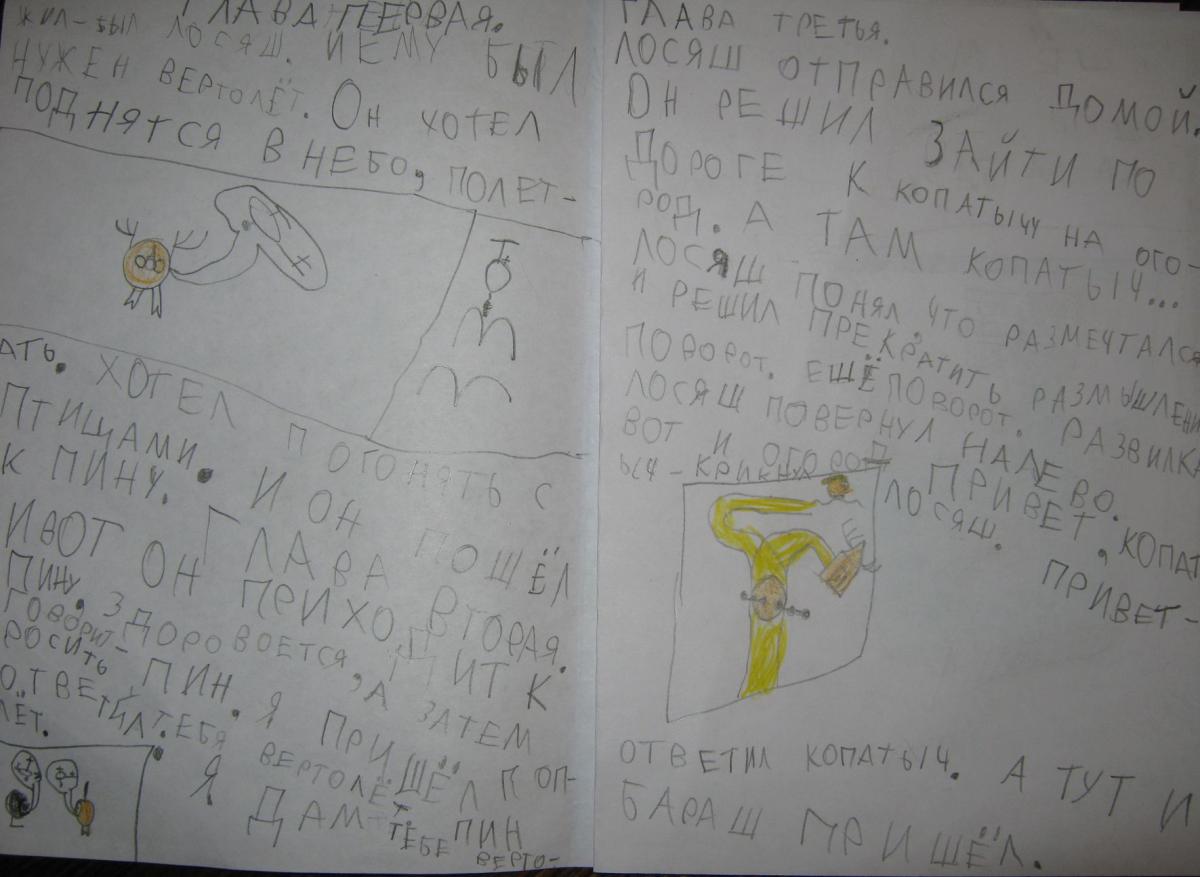 ГЛАВА ПЕРВАЯ.
ЖИЛ-БЫЛ ЛОСЯШ. ЙЕМУ БЫЛ
НУЖЕН ВЕРТОЛЁТ. ОН ХОТЕЛ
ПОДНЯТСЯ В НЕБО, ПОЛЕТ-
АТЬ. ХОТЕЛ ПОГОНЯТЬ С
ПТИЦАМИ. И ОН ПОШЁЛ
К ПИНУ. ГЛАВА ВТОРАЯ.
И ВОТ ОН ПРИХОДИТ К
ПИНУ, ЗДОРОВОЕТСЯ, А ЗАТЕМ
ГОВОРИТ- ПИН. Я ПРИШЁЛ ПОП-
РОСИТЬ У ТЕБЯ ВЕРТОЛЁТ.
Я ДАМ ТЕБЕ ВЕРТО-
ЛЁТ. ОТВЕТИЛ ПИН
ГЛАВА ТРЕТЬЯ.
ЛОСЯШ ОТПРАВИЛСЯ ДОМОЙ.
ОН РЕШИЛ ЗАЙТИ ПО
ДОРОГЕ К КОПАТЫЧУ НА ОГО-
РОД. А ТАМ КОПАТЫЧ...
ЛОСЯШ ПОНЯЛ, ЧТО РАЗМЕЧТАЛСЯ
И РЕШИЛ ПРЕКРАТИТЬ РАЗМЫШЛЕНИ
ПОВОРОТ. ЕЩЁ ПОВОРОТ. РАЗВИЛКА
ЛОСЯШ ПОВЕРНУЛ НАЛЕВО.
ВОТ И ОГОРОД ПРИВЕТ, КОПАТ
ЫЧ-КРИКНУЛ ЛОСЯШ. ПРИВЕТ-
ОТВЕТИЛ КОПАТЫЧ. А ТУТ И
БАРАШ ПРИШЁЛ.